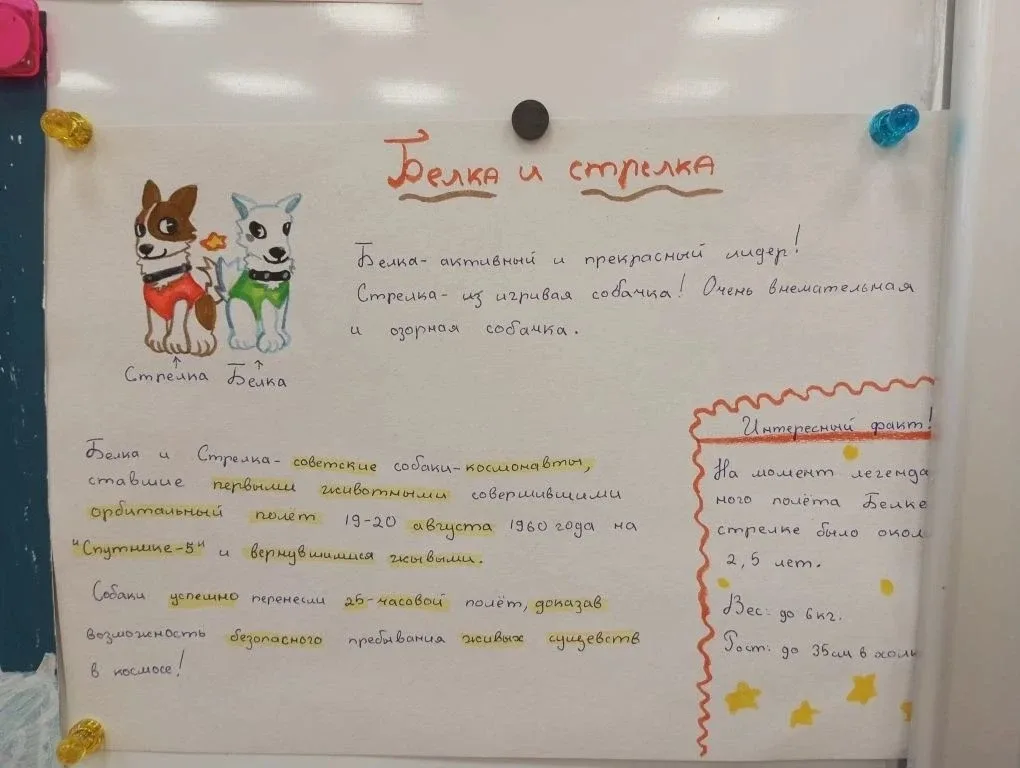 Белка и стрелка
Белка- активный и прекрасный лидер!
Стрелка- из игривая собачка! Очень внемательная
и озорная собачка.
Стрелка Белка
Белка и Стрелка- советские собаки-космонавты,
ставшие первыми животными совершившими
орбитальный полёт 19-20 августа 1960 года на
"Спутнике-5" и вернувшимися живыми.
Собаки успешно перенесли 25-часовой полёт, доказав
возможность безопасного пребывания живых существ
в космосе!
Интересный факт!
На момент легенда
ного полёта Белке
стрелке было окол
2,5 лет.
Вес: до 6кг.
Рост: до 35см в холк